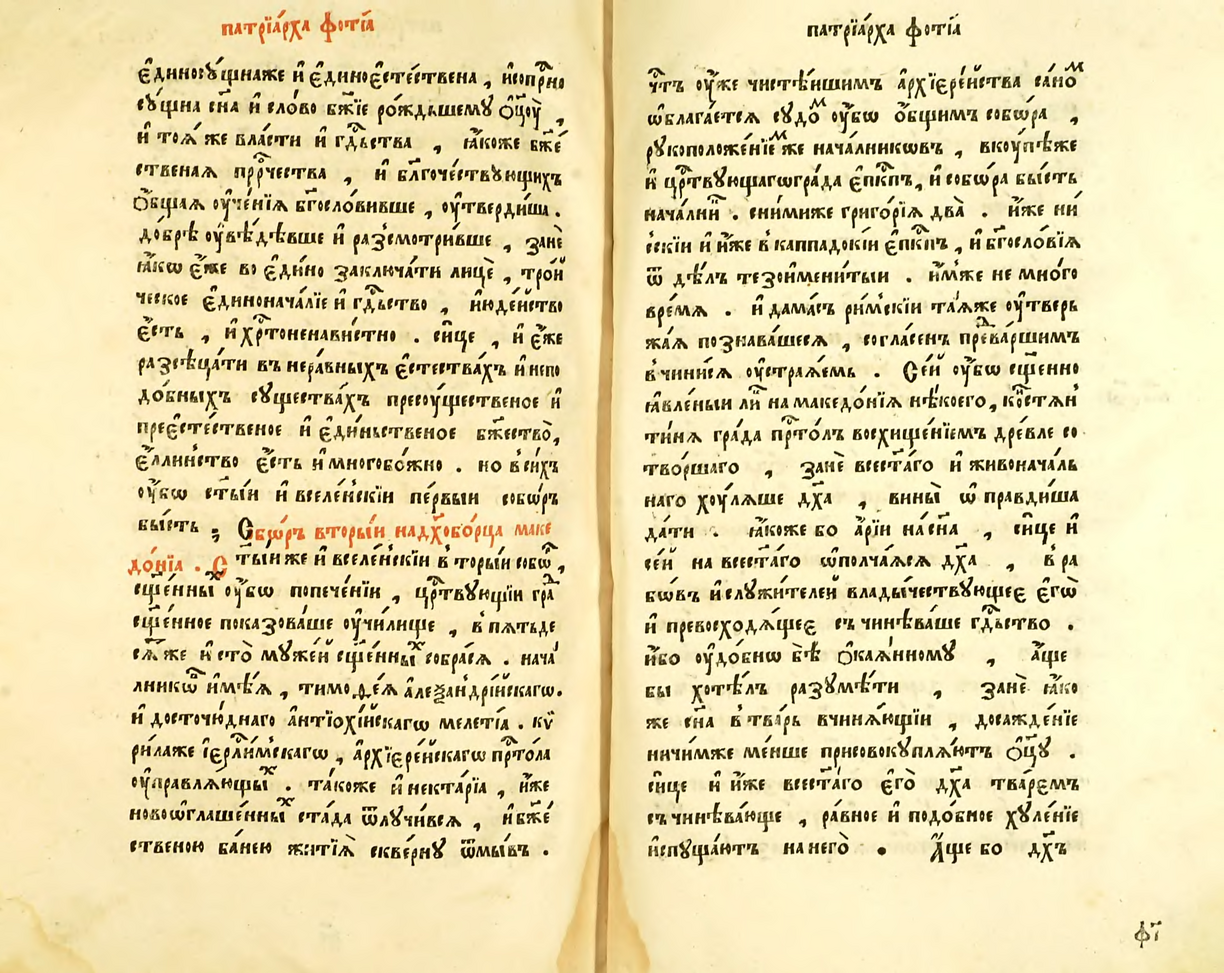 патрїа́рха фо́тїа
є҆диносꙋ́щнаже и҆ є҆диноєсте́ствена , и҆сопрⷭ҇но
сꙋ́щна сн҃а и҆ сло́во бж҃їе ро́ждьшемꙋ ѻ҆ц҃ꙋ̀ ,
и҆ тоѧ́ же вла́сти и҆ гдⷭ҇ьства , ꙗ҆́коже бж҃е́
ственаѧ прⷪ҇рчества , и҆ бл҃гоче́ствꙋющихъ
ѻ҆́бщаѧ оу҆че́нїѧ бг҃осло́вивше , оу҆тверди́ша .
до́брѣ оу҆вѣ́дѣвше и҆ разсмотри́вше , занѐ
ꙗ҆́кѡ є҆́же во є҆ди́но заключа́ти лицѐ , тро́и
ческое є҆диноначалїе и҆ гдⷭ҇ьство , и҆юде́йство
є҆́сть , и҆ хрⷭ҇тоненави́стно . си́це , и҆ є҆́же
разсѣца́ти въ нера́вныхъ є҆стества́хъ и҆ непо
до́бныхъ сꙋщества́хъ пресоу́щественое и҆
преєсте́ственое и҆ є҆ди́ньственое бж҃ество̀,
є҆́ллиньство є҆́сть и҆ многобо́жно . но в си́хъ
оу҆́бѡ ст҃ы́и и҆ вселе́нскїи пе́рвыи собѡ́ръ
бы́сть ; Сбѡ́ръ вторы́и на дх҃обо́рца маке
до́нїа . С ты́и же и҆ вселе́нскїи в торы́и собѡ́ⷬ ,
сщ҃е́нныⷯ оу҆́бѡ попече́нїи , црⷭ҇твꙋющїи гра́ⷣ
сщ҃е́нное показова́ше оу҆чи́лище , в пѧтьде
сѧ́т же и҆ сто̀ мꙋже́й сщ҃е́нныⷯ собра́сѧ . нача́
лникѡⷡ и҆мѣ́ѧ , тимоѳе́ѧ а҆леѯандрі́йскагѡ.
и҆ досточю́днаго а҆нтїохі́йскагѡ меле́тїа . кѵ
ри́лаже і҆ерⷭ҇ли́мскагѡ , а҆рхїере́йскагѡ прⷭ҇то́ла
оу҆правлѧ́ющыⷯ . та́коже и҆ некта́рїа , и҆́же
новоѡглаше́нныⷯ ста́да ѿлꙋчи́всѧ , и҆ бж҃е́
ственою ба́нею житїѧ̀ скве́рнꙋ ѿмы́въ .
патрїа́рха фо́тїа
чⷭ҇тъ оу҆́же чистѣ́ишимъ а҆рхїере́йства са́ноⷨ
ѡ҆благае́тсѧ сꙋдо́ⷨ оу҆́бѡ ѻ҆́бщимъ собѡ́ра ,
рꙋкоположе́нїеⷨ же нача́лникѡвъ , вкоу́пѣже
и҆ црⷭ҇твꙋющагѡгра́да є҆пⷭ҇кпъ, и҆ собѡ́ра бы́сть
нача́лниⷦ . с ни́миже григо́рїѧ два̀ . и҆́же ни́
сскїи и҆ и҆́же в каппадокі́и є҆пⷭ҇кпъ , и҆ бг҃осло́вїѧ
ѿ дѣ́лъ тезои҆мени́тыи . и҆́мже не мно́го
вре́мѧ . и҆ дама́съ ри́мскїи та́ѧже оу҆тверь
жа́ѧ познава́шесѧ , согла́сенъ преⷣва́ршимъ
в чини́сѧ оу҆страѧ́емь . Се́й оу҆́бѡ сщ҃е́нно
ꙗ҆вле́ныи ли́к на македо́нїѧ нѣ́коего, ко́стѧн
ти́нѧ гра́да прⷭ҇то́лъ восхище́нїемъ дре́вле со
тво́ршаго , занѐ всест҃а́го и҆ живонача́ль
наго хоу́лѧше дх҃а , вины̀ ѡ҆правди́ша
да́ти . ꙗ҆́коже бо а҆́рїи на сн҃а , си́це и҆
се́й на всест҃а́го ѡ҆полча́ѧсѧ дх҃а , в ра
бѡ́въ и҆ слꙋжи́телей влады́чествꙋющее є҆гѡ̀
и҆ превосходѧ́щее съ чинѣ́ваше гдⷭ҇ьство .
и҆́бо оу҆до́бнѡ бѣ̀ ѻ҆каѧ́нномꙋ , а҆́ще
бы хотѣ́лъ разꙋмѣ́ти , занѐ ꙗ҆́ко
же сн҃а в тва́рь вчинѧ́ющїи , досажде́нїе
ничи́мже ме́нше присовокꙋплѧ́ютъ ѻ҆ц҃ꙋ .
си́це и҆ и҆́же всест҃а́го є҆го̀ дх҃а тва́ремъ
съ чинѣва́юще , ра́вное и҆ подо́бное хꙋле́нїе
и҆спꙋща́ютъ на него̀ . А҆́ще бо дх҃ъ
фі҃